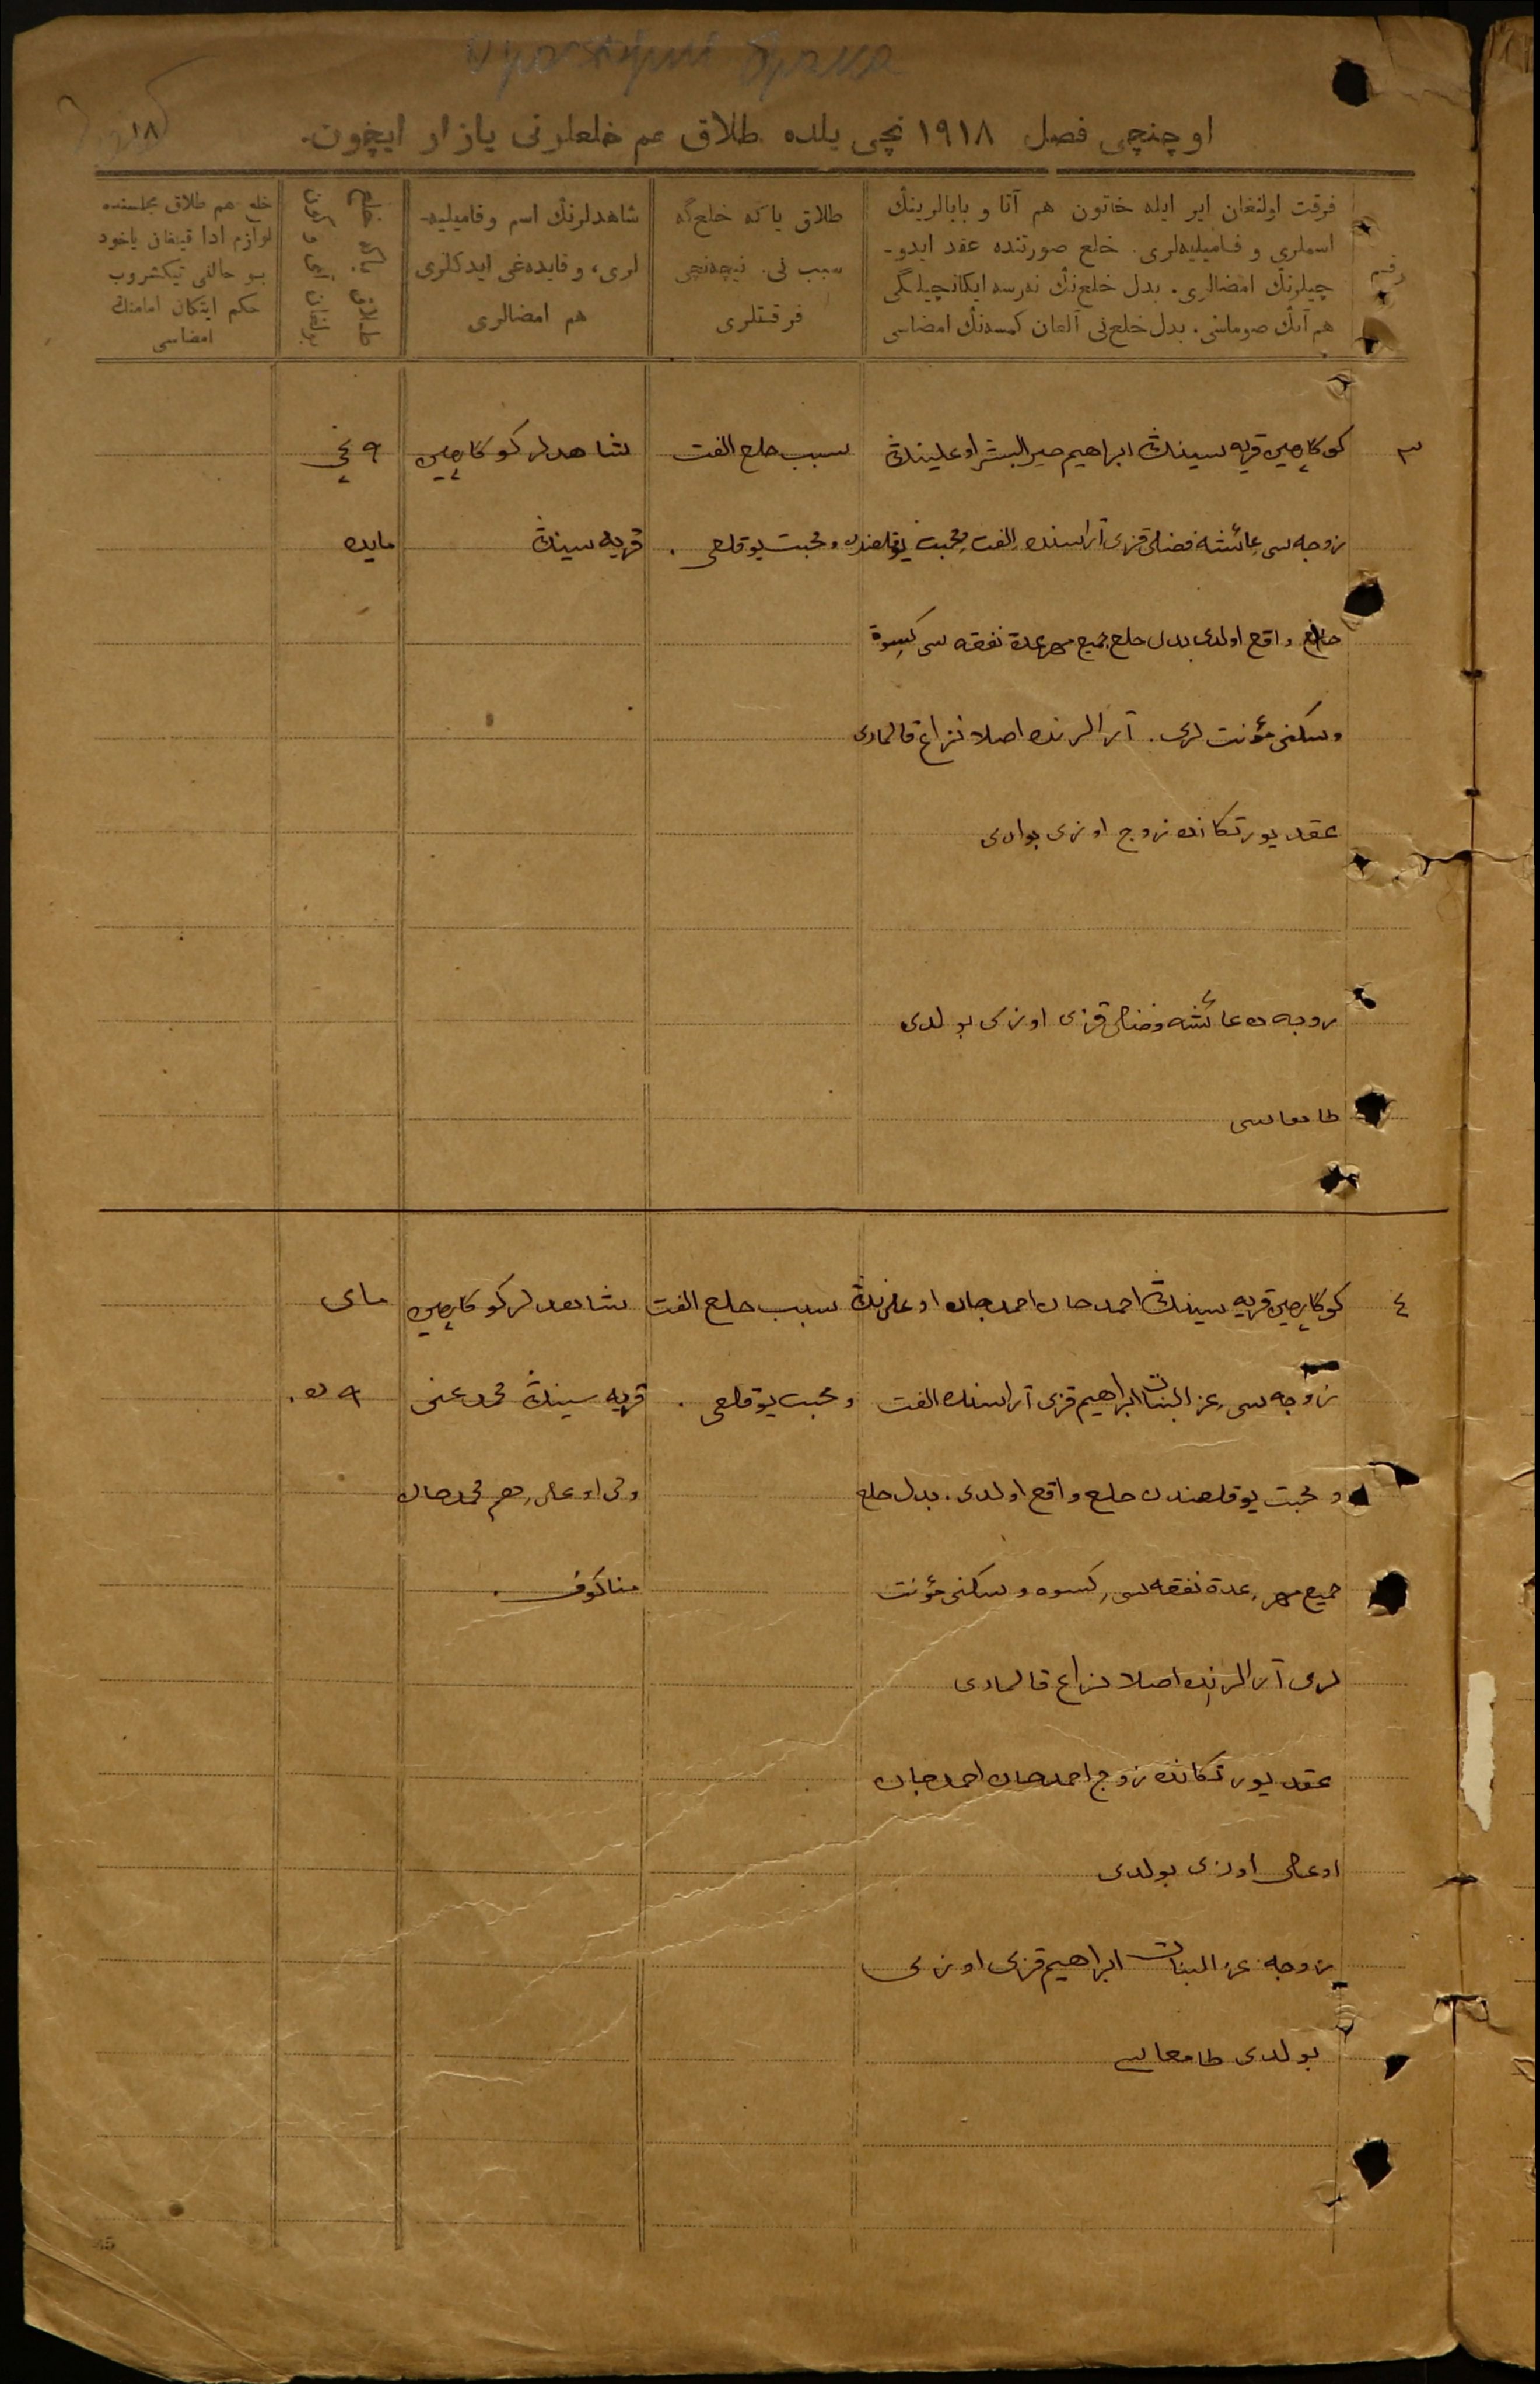 ١٨
اوچنچی فصل ١٩١٨ نچی یلده طلاق هم خلعلرنی یازار ایچون.
رقم
فرقت اولنغان ایر ایله خاتون هم آتا و بابالرینڭ
اسملری و فامیلیه‌لری. خلع صورتنده عقد ایدو-
چیلرنڭ امضالری. بدل خلع‌نڭ نەرسە ایکانچیلگی
هم آنڭ صوماسی. بدل خلع‌نی آلغان کمسه‌نڭ امضاسی
طلاق یاکه خلع‌گه
سبب نی. نیچەنچی
فرقتلری
شاهدلرنڭ اسم وفامیلیه-
لری، و قایده‌غی ایدکلری
هم امضالری
طلاق یاکه خلع
بولغان آی و کون
خلع هم طلاق مجلسنده
لوازم ادا قیلغان یاخود
بو حالنی تیکشروب
حکم ایتکان امامنڭ
امضاسی
٣
کوکارچین قریه سینڭ ابراهیم خیرالبشر اوغلینڭ
زوجه سی عائشه فضلی قزی آراسنده الفت و محبت یوقلغندن
خلع واقع اولدی بدل خلع جمیع مهر عدة نفقه سی کسوة
وسکنی مؤنت لری. آرالرنده اصلا نزاع قالمادی
عقد یورتکانده زوج اوزی بولدی
زوجه ده عائشه فضلی قزی اوزی بولدی
طامغاسی
سبب خلع الفت
و محبت یوقلغی.
شاهدلر کوکارچین
قریه سینڭ
٩ نچی
مایده
٤
کوکارچین قریه سینڭ احمدجان احمدجان اوغلی‌نڭ
زوجه سی عزالبنات ابراهیم قزی آراسنده الفت
و محبت یوقلغندن خلع واقع اولدی. بدل خلع
جمیع مهر عدة نفقه سی کسوه و سکنی مؤنت
لری آرالرنده اصلا نزاع قالمادی
عقد یورتکانده زوج احمدجان احمدجان
اوغلی اوزی بولدی
زوجه عزالبنات ابراهیم قزی اوزی
بولدی طامغاسی
سبب خلع الفت
و محبت یوقلغی.
شاهدلر کوکارچین
قریه سینڭ محمدغنی
اوغلی هم محمدجان
ماى
٩ ده.